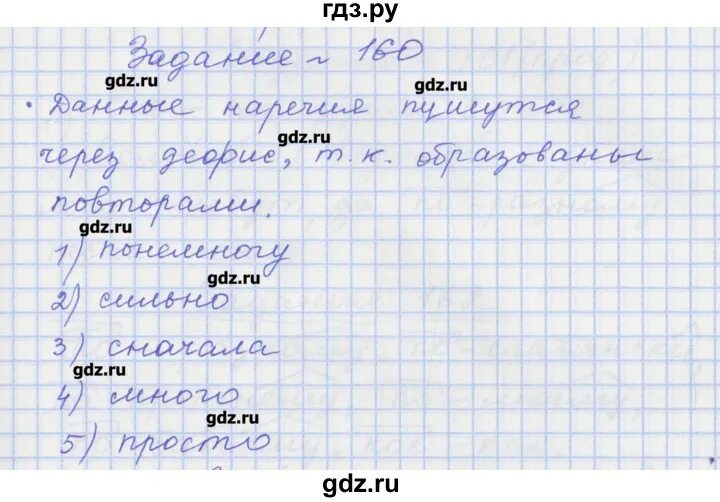 гдз.ру
Задание ~ 160
gdz.ru gdz.ru
· Данные наречия пишутся
gdz.ru
через дефис, т.к. образованы
повторами.
gdz.ru
1) понемногу
gdz.ru
2) сильно
3) сначала
gdz.ru
4) много
gdz.ru
5) просто
gdz.ru